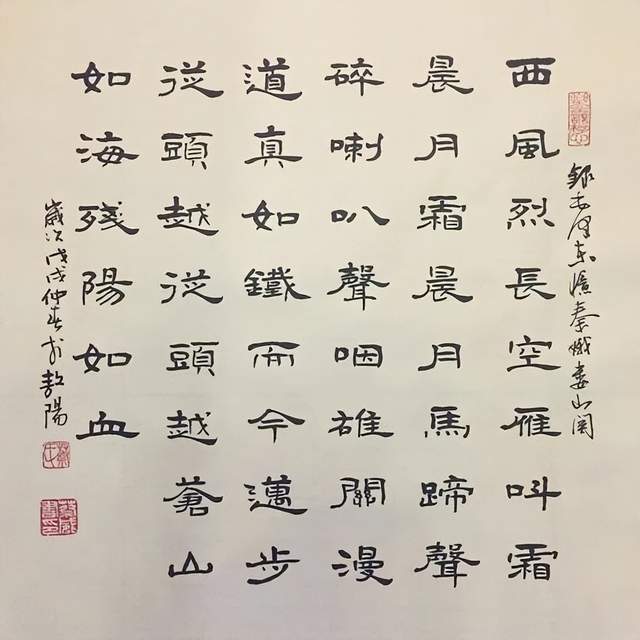 錄毛泽东憶秦娥娄山関
西風烈長空雁叫霜
晨月霜晨月馬蹄聲
碎喇叭聲咽雄關漫
道真如鐵而今邁步
從頭越從頭越蒼山
如海殘陽如血
歲次戊戌仲春於敖陽